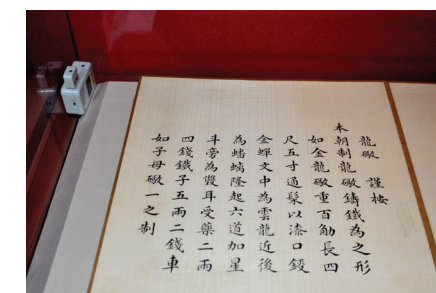 龍礮　謹按
本朝制龍礮鑄鐵為之形
如金龍礮重百觔長四
尺五寸通髹以漆口鋄
金蟬文中為雲龍近後
為蟠螭隆起六道加星
斗旁為雙耳受藥二兩
四錢鐵子五兩二錢車
如子母礮一之制